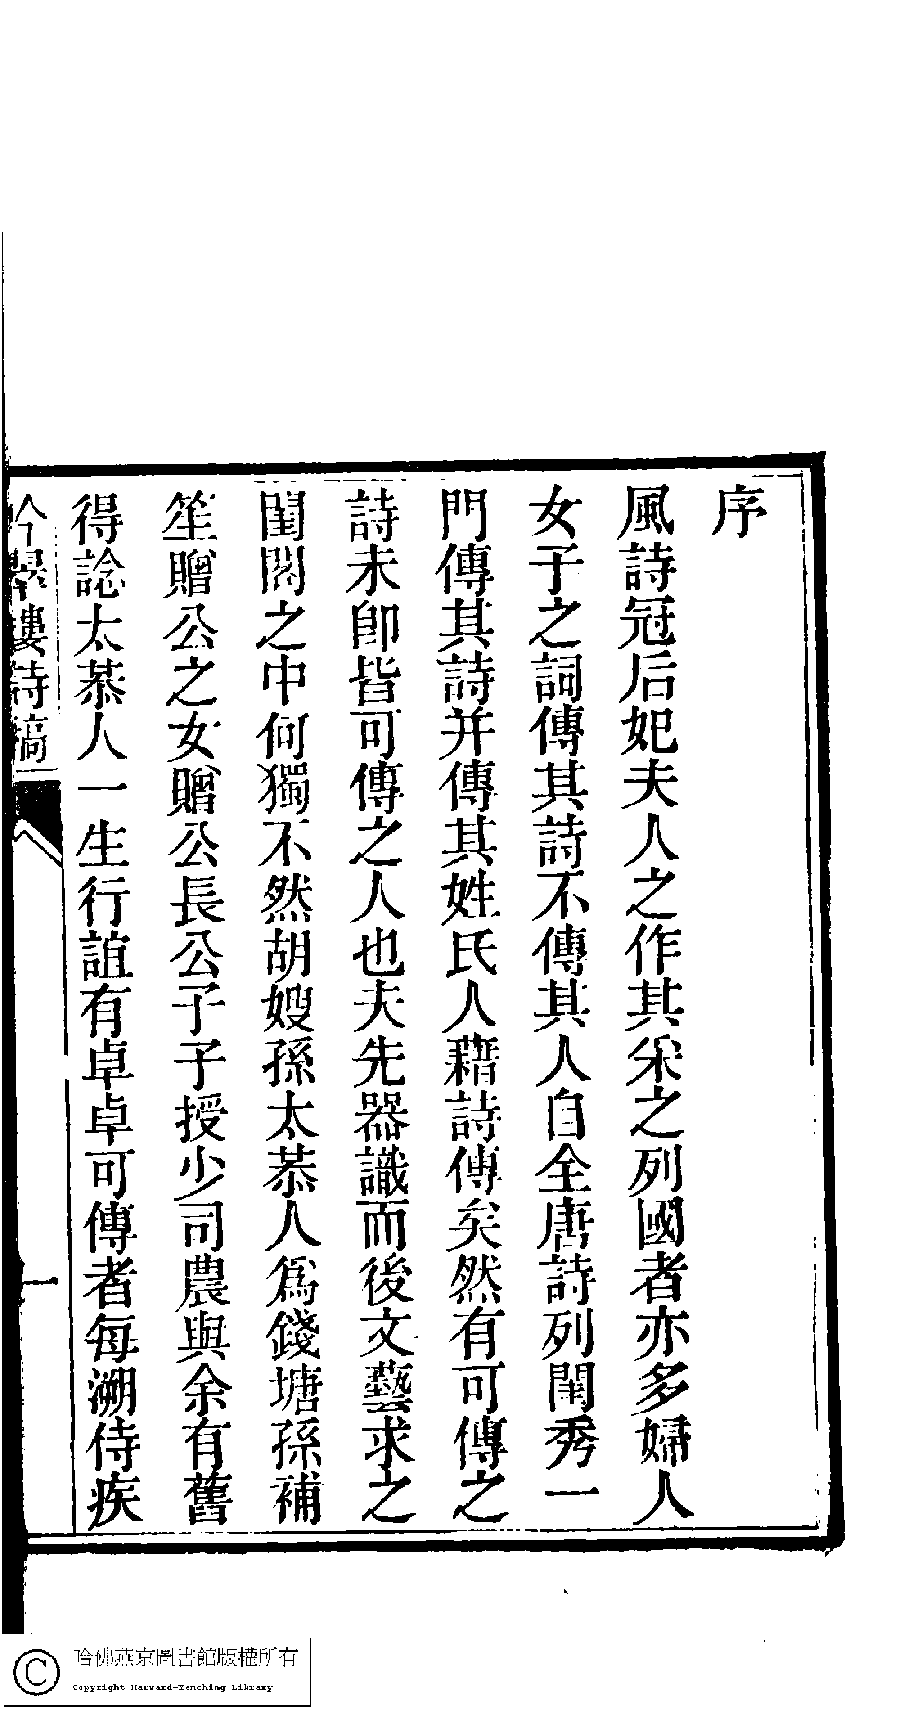 序
風詩冠后妃夫人之作其采之列國者亦多婦人
女子之詞傳其詩不傳其人自全唐詩列閨秀一
門傳其詩并傳其姓氏人藉詩傳矣然有可傳之
詩未卽皆可傳之人也夫先器識而後文藝求之
閨閣之中何獨不然胡嫂孫太恭人爲錢塘孫補
笙贈公之女贈公長公子子授少司農與余有舊
得諗太恭人一生行誼有卓卓可傳者每溯侍疾
吟翠樓詩稿
一
哈佛燕京圖書館版權所有
Copyright Harvard-Yenching Library